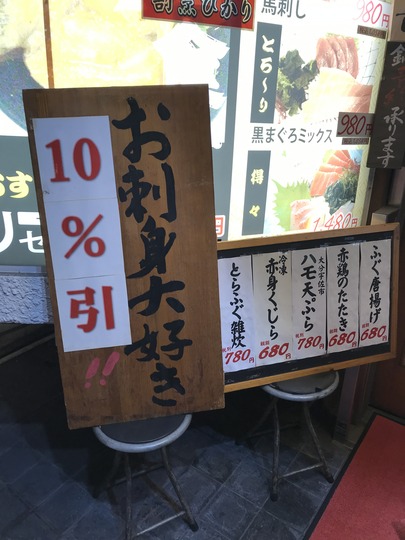 割烹ひかり
馬刺し
980円
とろ〜り
黒まぐろミックス
980円
得々
1,480円
承ります
お刺身大好き
10
%
引
!!
ふぐ唐揚げ
680円
赤鶏のたたき
680円
大分宇佐市
ハモ天ぷら
780円
冷凍
赤身くじら
680円
とらふぐ雑炊
780円